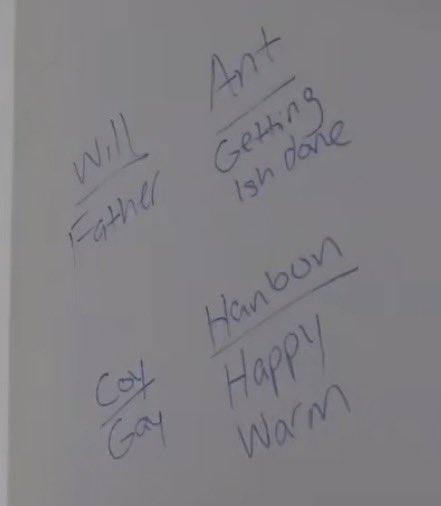 Will
Father
Ant
Getting
ish done
Coy
Gay
Hanbon
Happy
Warm